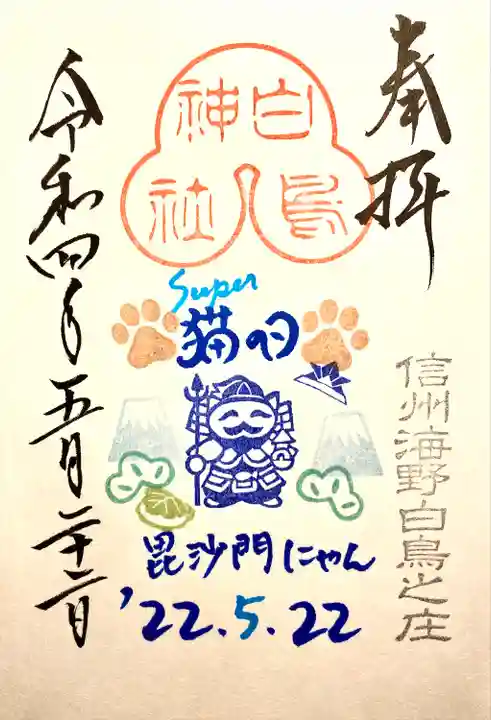 奉拝
白鳥
神社
Super
猫の日
毘沙門にゃん
'22.5.22
信州海野白鳥之庄
令和四年五月二十二日